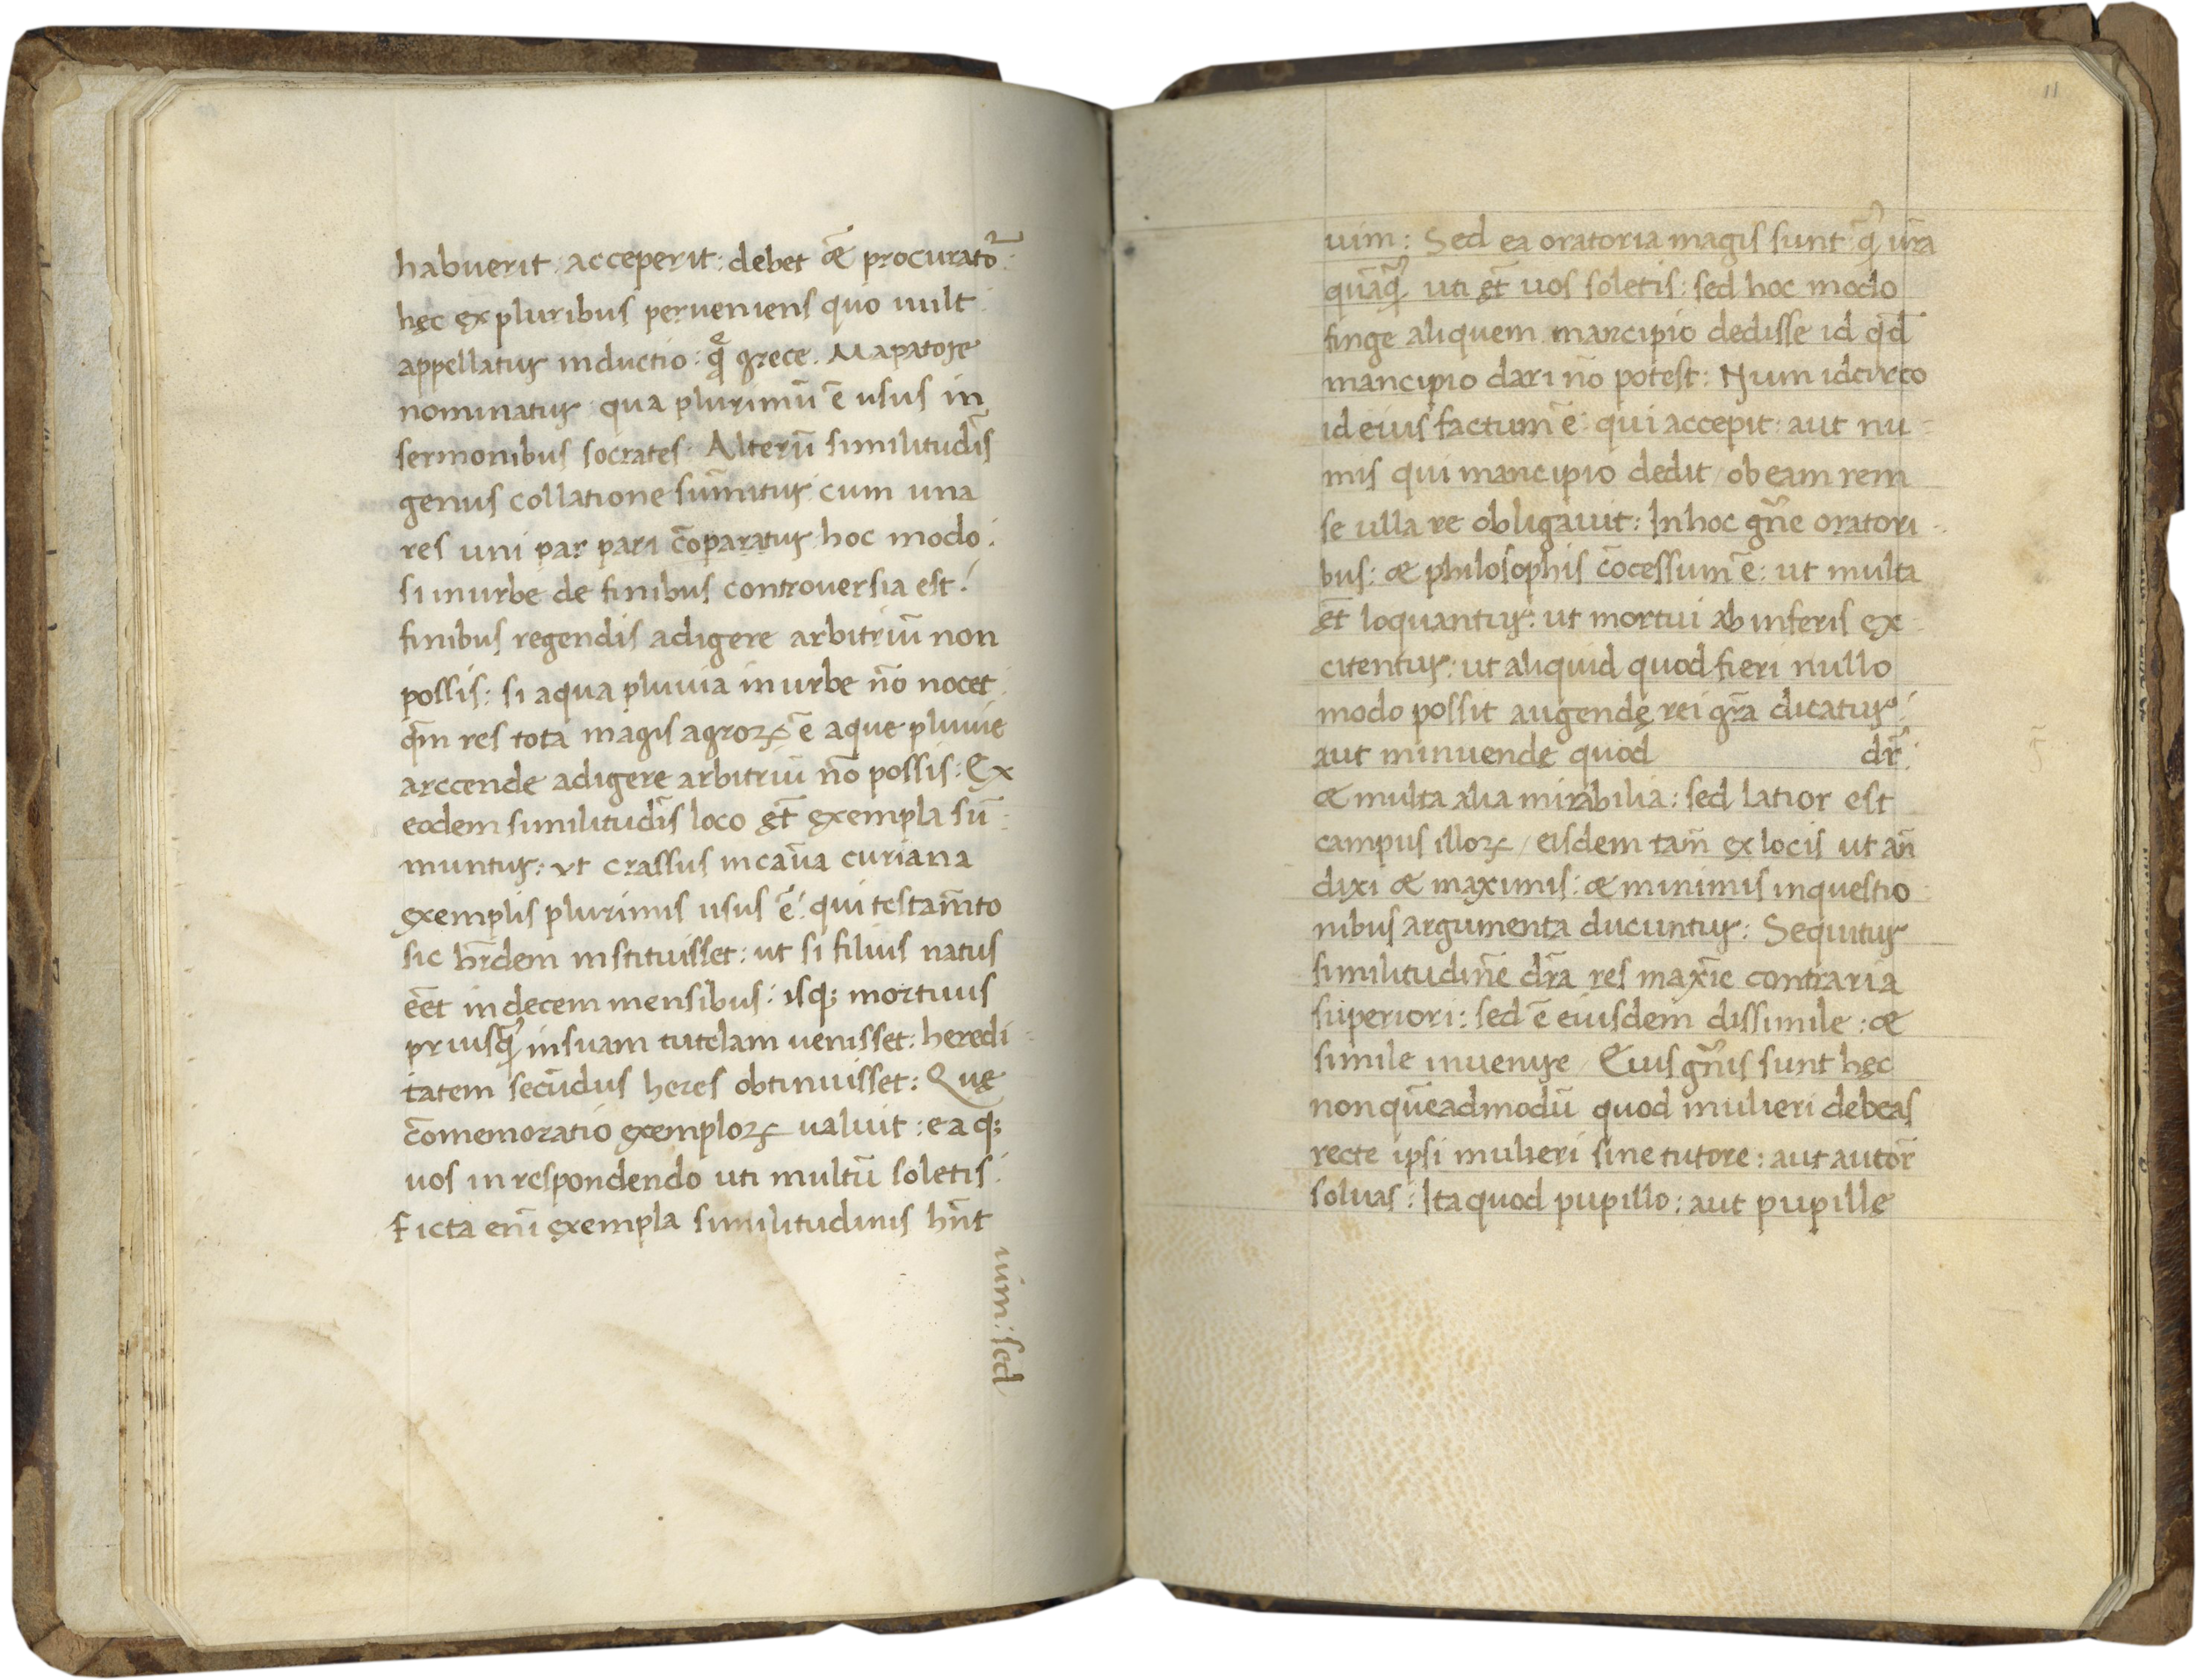 habuerit : acceperit : debet æ̃ procurato᷑ :
hęc ex pluribus perveniens quo vult
appellatur inductio : q̨ͤ grece . Mapatoge
nominatur qua plurimū ē usus in
sermonibus socrates : Alterū similitudīs
genus collatione sum̄itur cum una
res uni par pari cōparatur hoc modo :
si inurbe de finibus controversia est :
finibus regendis adigere arbitriū non
possis : si aqua pluvia inurbe nō nocet
qm̄ res tota magis agroꝝ ē aque pluvie
arccende adigere arbitriū nō possis : Ex
eodem similitudīs loco et̄ exempla sū
muntur : ut crassus incaūa curiana
exemplis plurimis usus ē : qui testam̄to
sic hr̄dem instituisset : ut si filius natus
eēt in decem mensibus : isqꝫ mortuus
priusqꝫ insuam tutelam venisset : heredi
tatem secūdus heres obtinuisset : Quę
cōmemoratio exemploꝝ valuit : ea qꝫ
vos in respondendo uti multū soletis :
Ficta eni᷒ exempla similitudinis hn̄t
uim : sed
11
uim : Sed ea oratoria magis sunt qꝫ ur̄a
quāqꝫ uti et̄ uos soletis : sed hoc modo
finge aliquem mancipio dedisse id qd̄
mancipio dari nō potest : Num idcirco
id eius factum ē : qui accepit : aut nu
mis qui mancipio dedit / ob eam rem
se ulla re obligavit : Inhoc gn̄e oratori
bus : æ philosophis cōcessum ē : ut multa
et̄ loquantur : ut mortui ab inferis ex
citentur : ut aliquid quod fieri nullo
modo possit augendę rei gr̄a dicatur :
aut minuende quod dr̄ :
æ multa alia mirabilia : sed latior est
campus illoꝝ / eisdem tam̄ ex locis ut an̄
dixi æ maximis : æ minimis inquestio
nibus argumenta ducuntur : Sequitur
similitudinē dr̄a res maxīe contraria
superiori : sed ē eiusdem dissimile : æ
simile invenire / Eius gn̄is sunt hęc
non quēadmodū quod mulieri debeas
recte ipsi mulieri sine tutore : aut autor̄
solvas : Ita quod pupillo : aut pupille